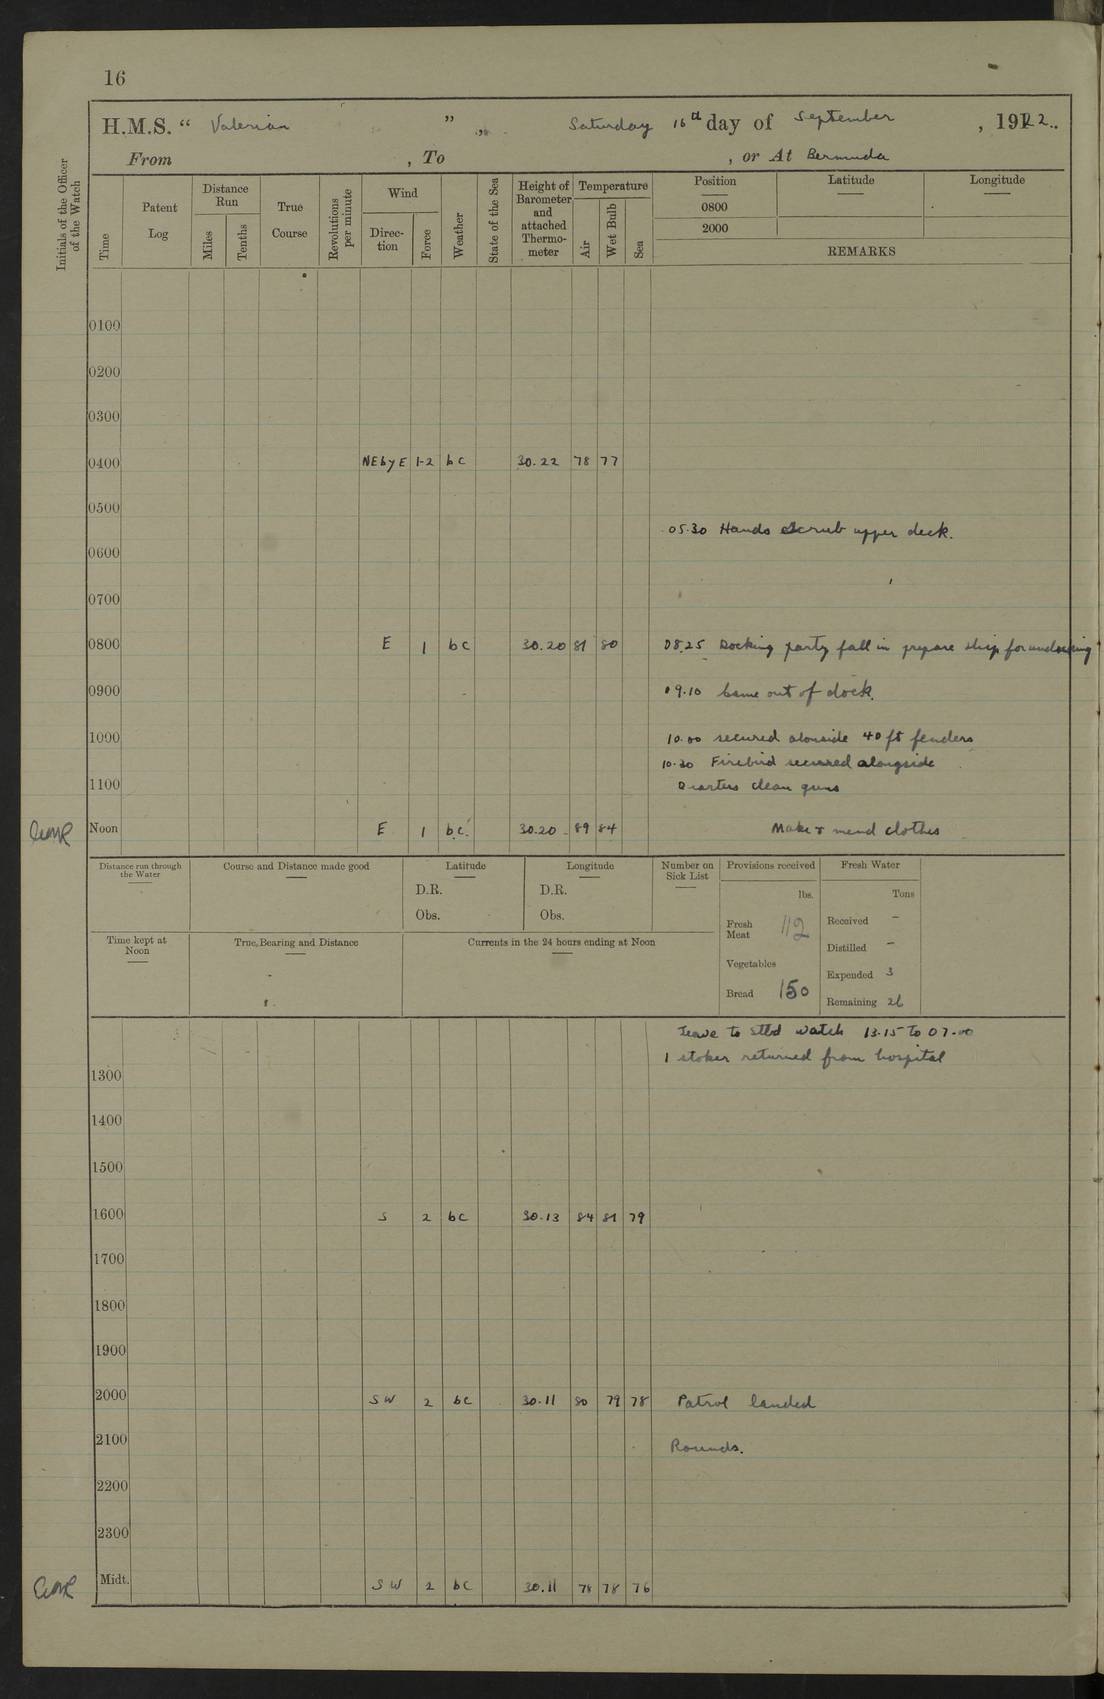 16
H.M.S. “ Valerian ” „ Saturday 16th day of September , 1922..
From , To , or At Bermuda
Initials of the Officer of the Watch
Time
Patent Log
Distance Run
Miles
Tenths
True Course
Revolutions per minute
Wind
Direc-tion
Force
Weather
State of the Sea
Height of Barometer and attached Thermo-meter
Temperature
Air
Wet Bulb
Sea
Position Latitude Longitude
0800
2000
REMARKS
0100
0200
0300
0400 NEbyE 1-2 bc 30.22 78 77
0500
05.30 Hands Scrub upper deck.
0600
0700
0800 E 1 bc 30.20 81 80 08.25 Docking party fall in prepare ship for undocking
0900 09.10 Came out of dock.
1000 10.00 secured alonside 40 ft fenders
10.30 Firebird secured alongside
1100 Quarters clean guns
Noon E 1 bc. 30.20 89 84 Make & mend clothes
Distance run through the Water
Course and Distance made good
Latitude
D.R.
Obs.
Longitude
D.R.
Obs.
Number on Sick List
Provisions received
lbs.
Fresh Meat 112
Vegetables
Bread 150
Fresh Water
Tons
Received -
Distilled -
Expended 3
Remaining 26
Time kept at Noon
True Bearing and Distance
Currents in the 24 hours ending at Noon
Leave to stbd watch 13.15 to 07.00
1 stoker returned from hospital
1300
1400
1500
1600 S 2 bc 30.13 84 81 79
1700
1800
1900
2000 SW 2 bc 30.11 80 79 78 Patrol landed
2100 Rounds.
2200
2300
Midt. SW 2 bc 30.11 78 78 76